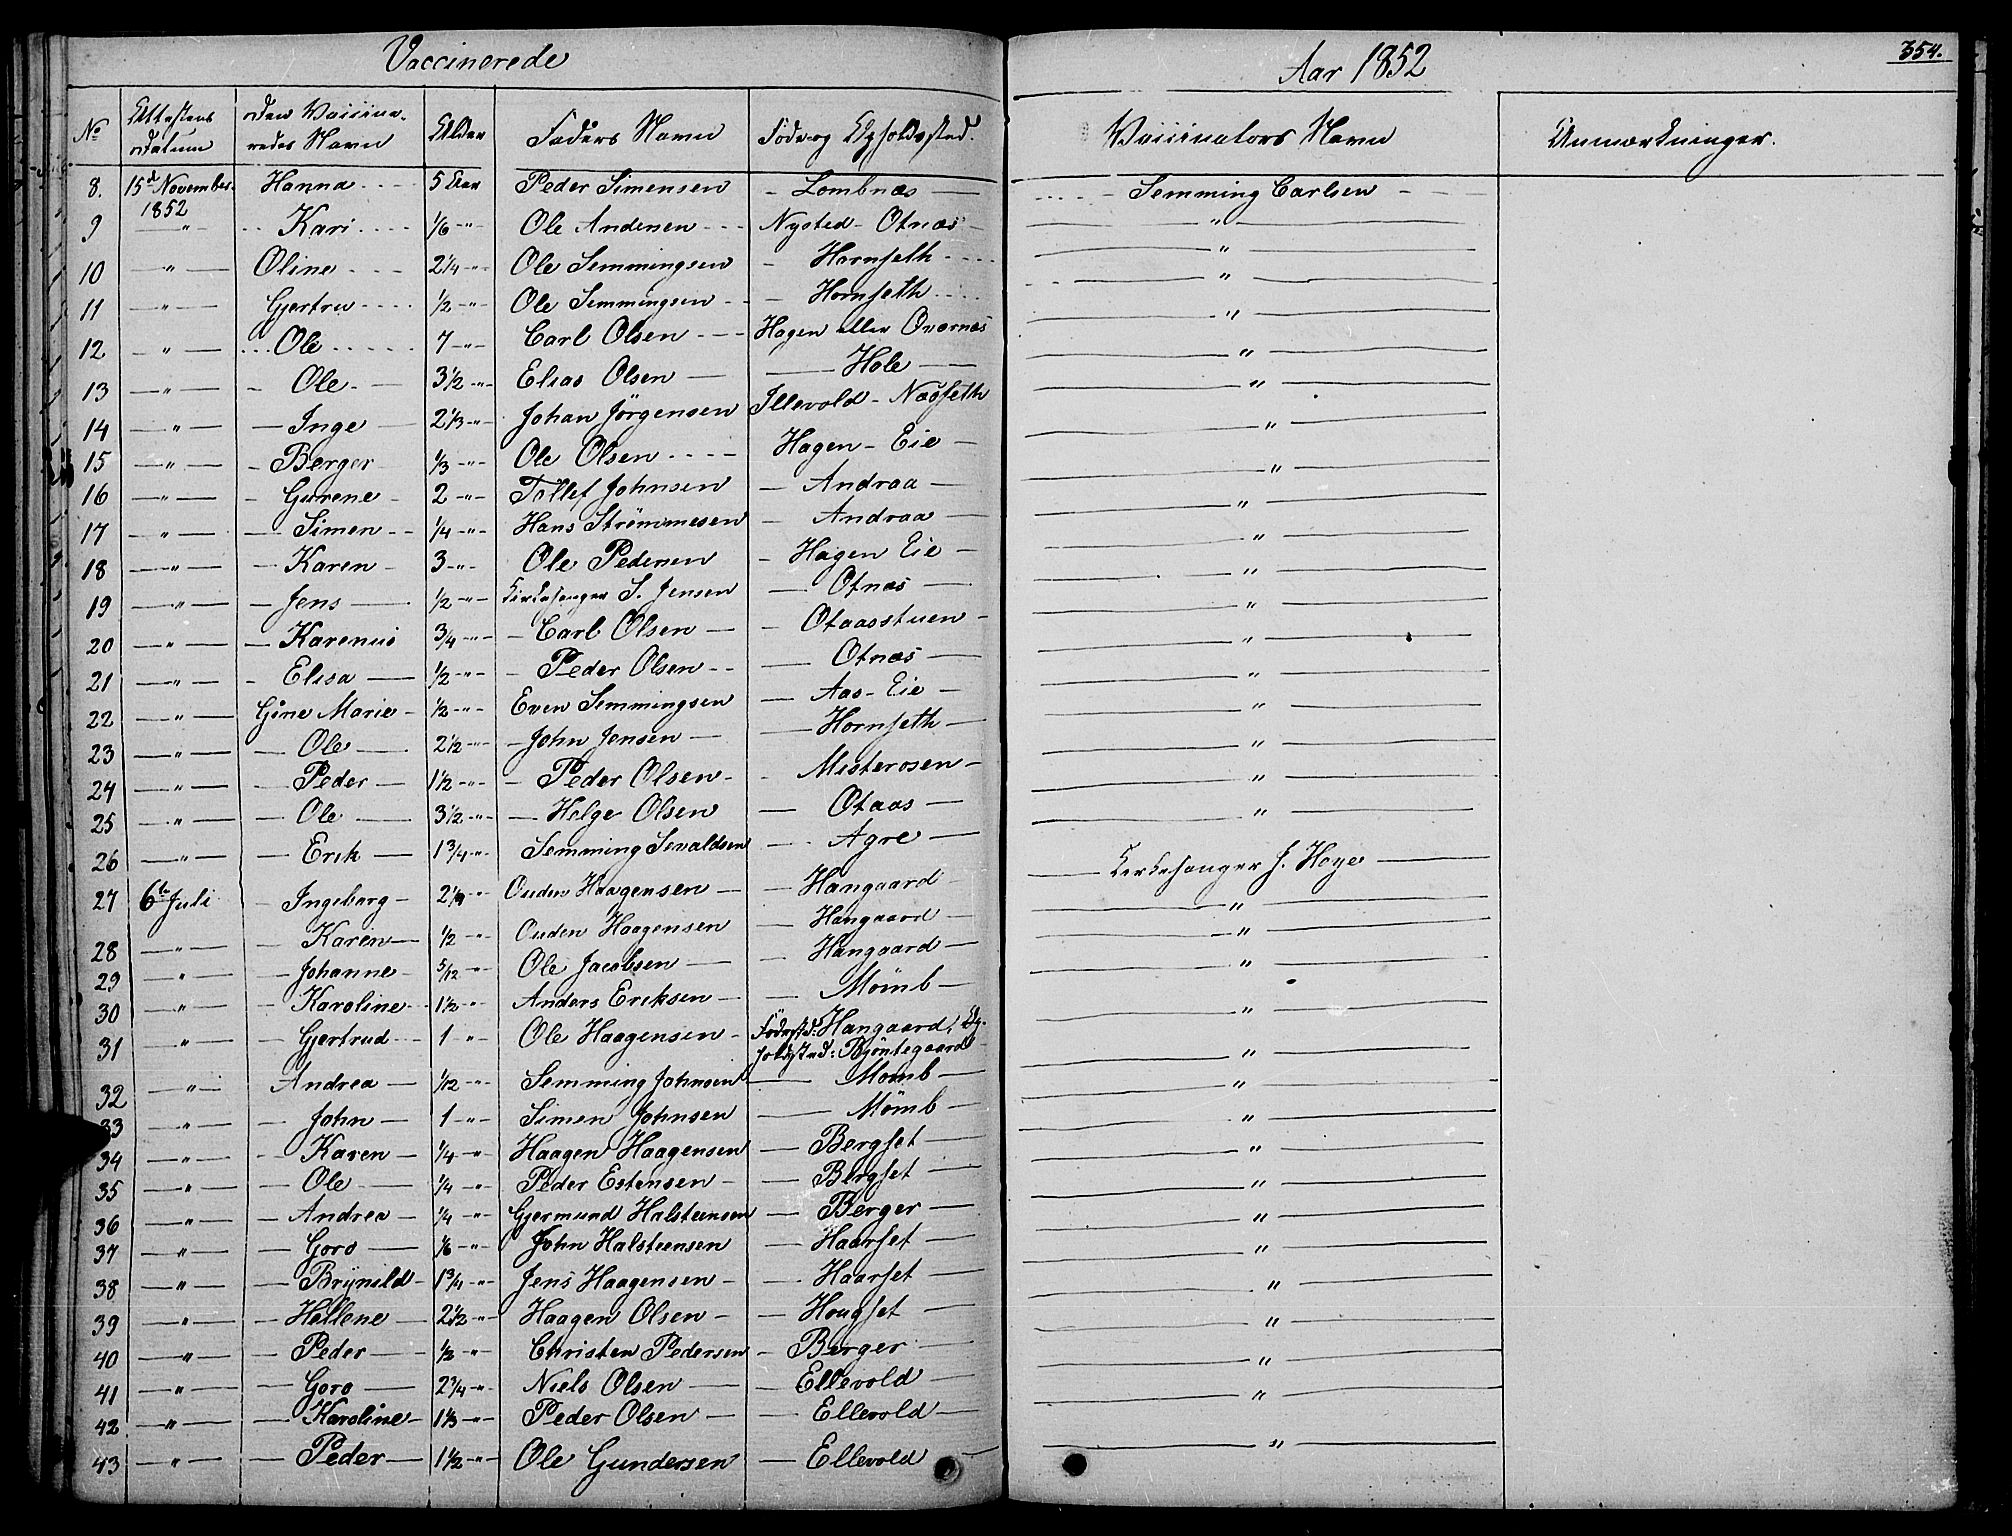 Vaccinerede
Aar 1852
354.
No Attestens Datum den Vaccineredes Navn Alder Faders Navn Føde og Opholdssted. Vaccinators Navn Anmærkninger.
8. 15d November 1852 Hanna 5 Aar Peder Simensen Lombnæs Semming Carlsen
9 " Kari 1/6 " Ole Andersen Nysted - Otnæs "
10 " Oline 2 1/4 " Ole Semmingsen Hornseth "
11 " Gjertru 1/2 " Ole Semmingsen Hornseth "
12 " Ole 7 " Carl Olsen Hagen eller Overnæs "
13 " Ole 3 1/2 " Elias Olsen Hole "
14 " Inge 2 1/3 " Johan Jörgensen Illevold - Næsseth "
15 " Berger 1/3 " Ole Olsen Hagen - Eie "
16 " Gurene 2 " Tollef Johnsen Andraa "
17 " Simen 1/4 " Hans Strømmesen Andraa "
18 " Karen 3 " Ole Pedersen Hagen Eie "
19 " Jens 1/2 " Kirkesanger S. Jensen Otnæs "
20 " Karenus 3/4 " Carl Olsen Otaasstuen "
21 " Elisa 1/2 " Peder Olsen Otnæs "
22 " Gine Marie 1/2 " Even Semmingsen Aas - Eie "
23 " Ole 2 1/2 " John Jensen Hornseth "
24 " Peder 1 1/2 " Peder Olsen Misterosen "
25 " Ole 3 1/2 " Helge Olsen Otaas "
26 " Erik 1 3/4 " Semming Sevaldsen Agre
27 6te Juli Ingeborg 2 1/2 " Ouden Haagensen Hangaard Kirkesanger J. Hoye
28 " Karen 1/2 " Ouden Haagensen Hangaard "
29 " Johanne 5/12 " Ole Jacobsen Hangaard "
30 " Karoline 1 1/2 " Anders Eriksen Mömb "
31 " Gjertrud 1 " Ole Haagensen Fødested: Hangaard, Opholdssted: Bjöntegaard "
32 " Andrea 1/12 " Semming Johnsen Mömb "
33 " John 1 " Simen Johnsen Mömb "
34 " Karen 1/4 " Haagen Haagensen Bergset "
35 " Ole 1/4 " Peder Estensen Bergset "
36 " Andrea 1/4 " Gjermund Halsteensen Berger "
37 " Goro 1/6 " John Halsteensen Haarset "
38 " Brynild 1 3/4 " Jens Haagensen Haarset "
39 " Hellene 2 1/2 " Haagen Olsen Hougset "
40 " Peder 1/2 " Christen Pedersen Berger "
41 " Goro 2 3/4 " Niels Olsen Ellevold "
42 " Karoline 1 1/3 " Peder Olsen Ellevold "
43 " Peder 1 1/2 " Ole Gundersen Ellevold "